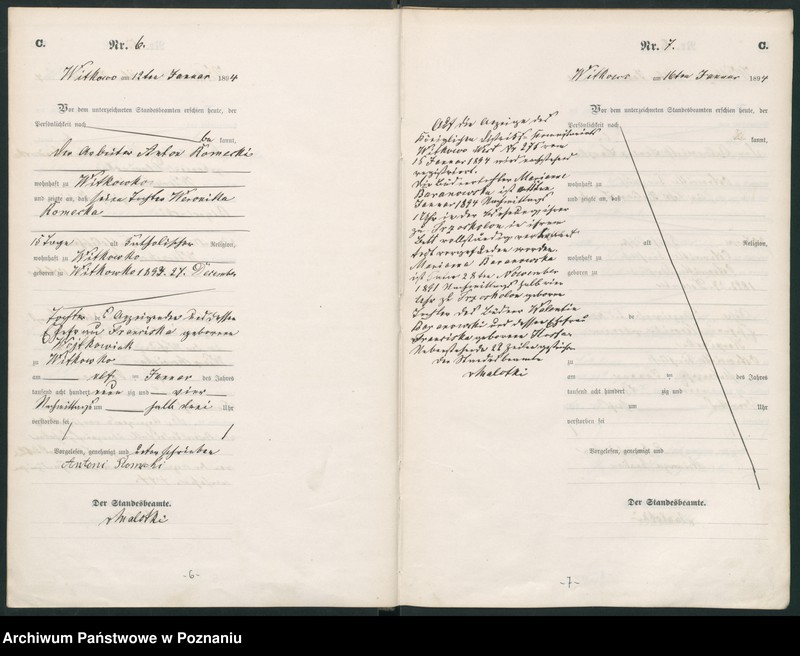 C.
Nr. 6.
Witkowo am 12ten Januar 1894
Vor dem unterzeichneten Standesbeamten erschien heute, der
Persönlichkeit nach
be kannt,
Der Arbeiter Anton Romecki
wohnhaft zu Witkowko
und zeigte an, daß seine Tochter Weronika
Romecka
15 Tage alt katholischer Religion,
wohnhaft zu Witkowko
geboren zu Witkowko 1893. 27. December
Tochter des Anzeigenden und dessen
Ehefrau Franciska geborene
Wojtkowiak
zu Witkowko
am elf ten Januar des Jahres
tausend acht hundert neun zig und vier
Nachmittags um halb drei Uhr
verstorben sei
Vorgelesen, genehmigt und unterschrieben
Antoni Romecki
Der Standesbeamte.
Malotki
-6-
Nr. 7.
C.
Witkowo am 16ten Januar 1894
Vor dem unterzeichneten Standesbeamten erschien heute, der
Persönlichkeit nach
kannt,
wohnhaft zu
und zeigte an, daß
alt Religion,
wohnhaft zu
geboren zu
zu
am ten des Jahres
tausend acht hundert zig und
um Uhr
verstorben sei
Vorgelesen, genehmigt und
Der Standesbeamte.
Auf die Anzeige des
Königlichen Distrikts-Kommissariats
Witkowo vom
15 Januar 1894 wird nachstehend
registriert.
Die Büdnertochter Marianna
Baranowska ist
Januar 1894 Nachmittags
1 Uhr in der
zu in ihrem
Bett vollständig
todt vorgefunden worden.
Marianna Baranowska
ist am 28ten November
1891 Nachmittags halb vier
Uhr zu geboren
Tochter des Büdner Valentin
Baranowski und dessen Ehefrau
Franciska geborene
Nebenstehende 22 Zeilen gestrichen
Der Standesbeamte
Malotki
-7-
Archiwum Państwowe w Poznaniu